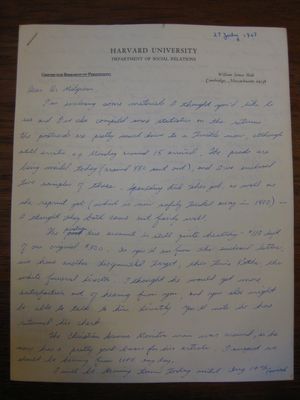 27 July 1967
HARVARD UNIVERSITY
DEPARTMENT OF SOCIAL RELATIONS
CENTER FOR RESEARCH IN PERSONALITY
William James Hall
Cambridge, Massachusetts 02138
Dear Dr. Milgram:
I'm enclosing some materials I thought you'd like to
see and I've also compiled some statistics on the returns
the postcards are pretty much down to a trickle now, although
still Monday around 15 arrived. The prods are
being mailed today (around 450 sent out), and I've enclosed
two samples of those. Spaulding did that job as well as
the reprint job (which is now safely tucked away in 1400) —
I thought they both came out fairly well.
The account is still quite healthy - $110 left
of our original $320. As you'll see from the enclosed letters,
we have another target, this time
white funeral director. I thought he would get more
satisfaction out of hearing from you, and you also might
be able to talk to him directly. You'll note he has
returned his check.
The Christian Science Monitor man was around, so he
now has a pretty good basis for his article. I suspect we
should be hearing from UPI any day.
I will be coming down today until Aug 14th